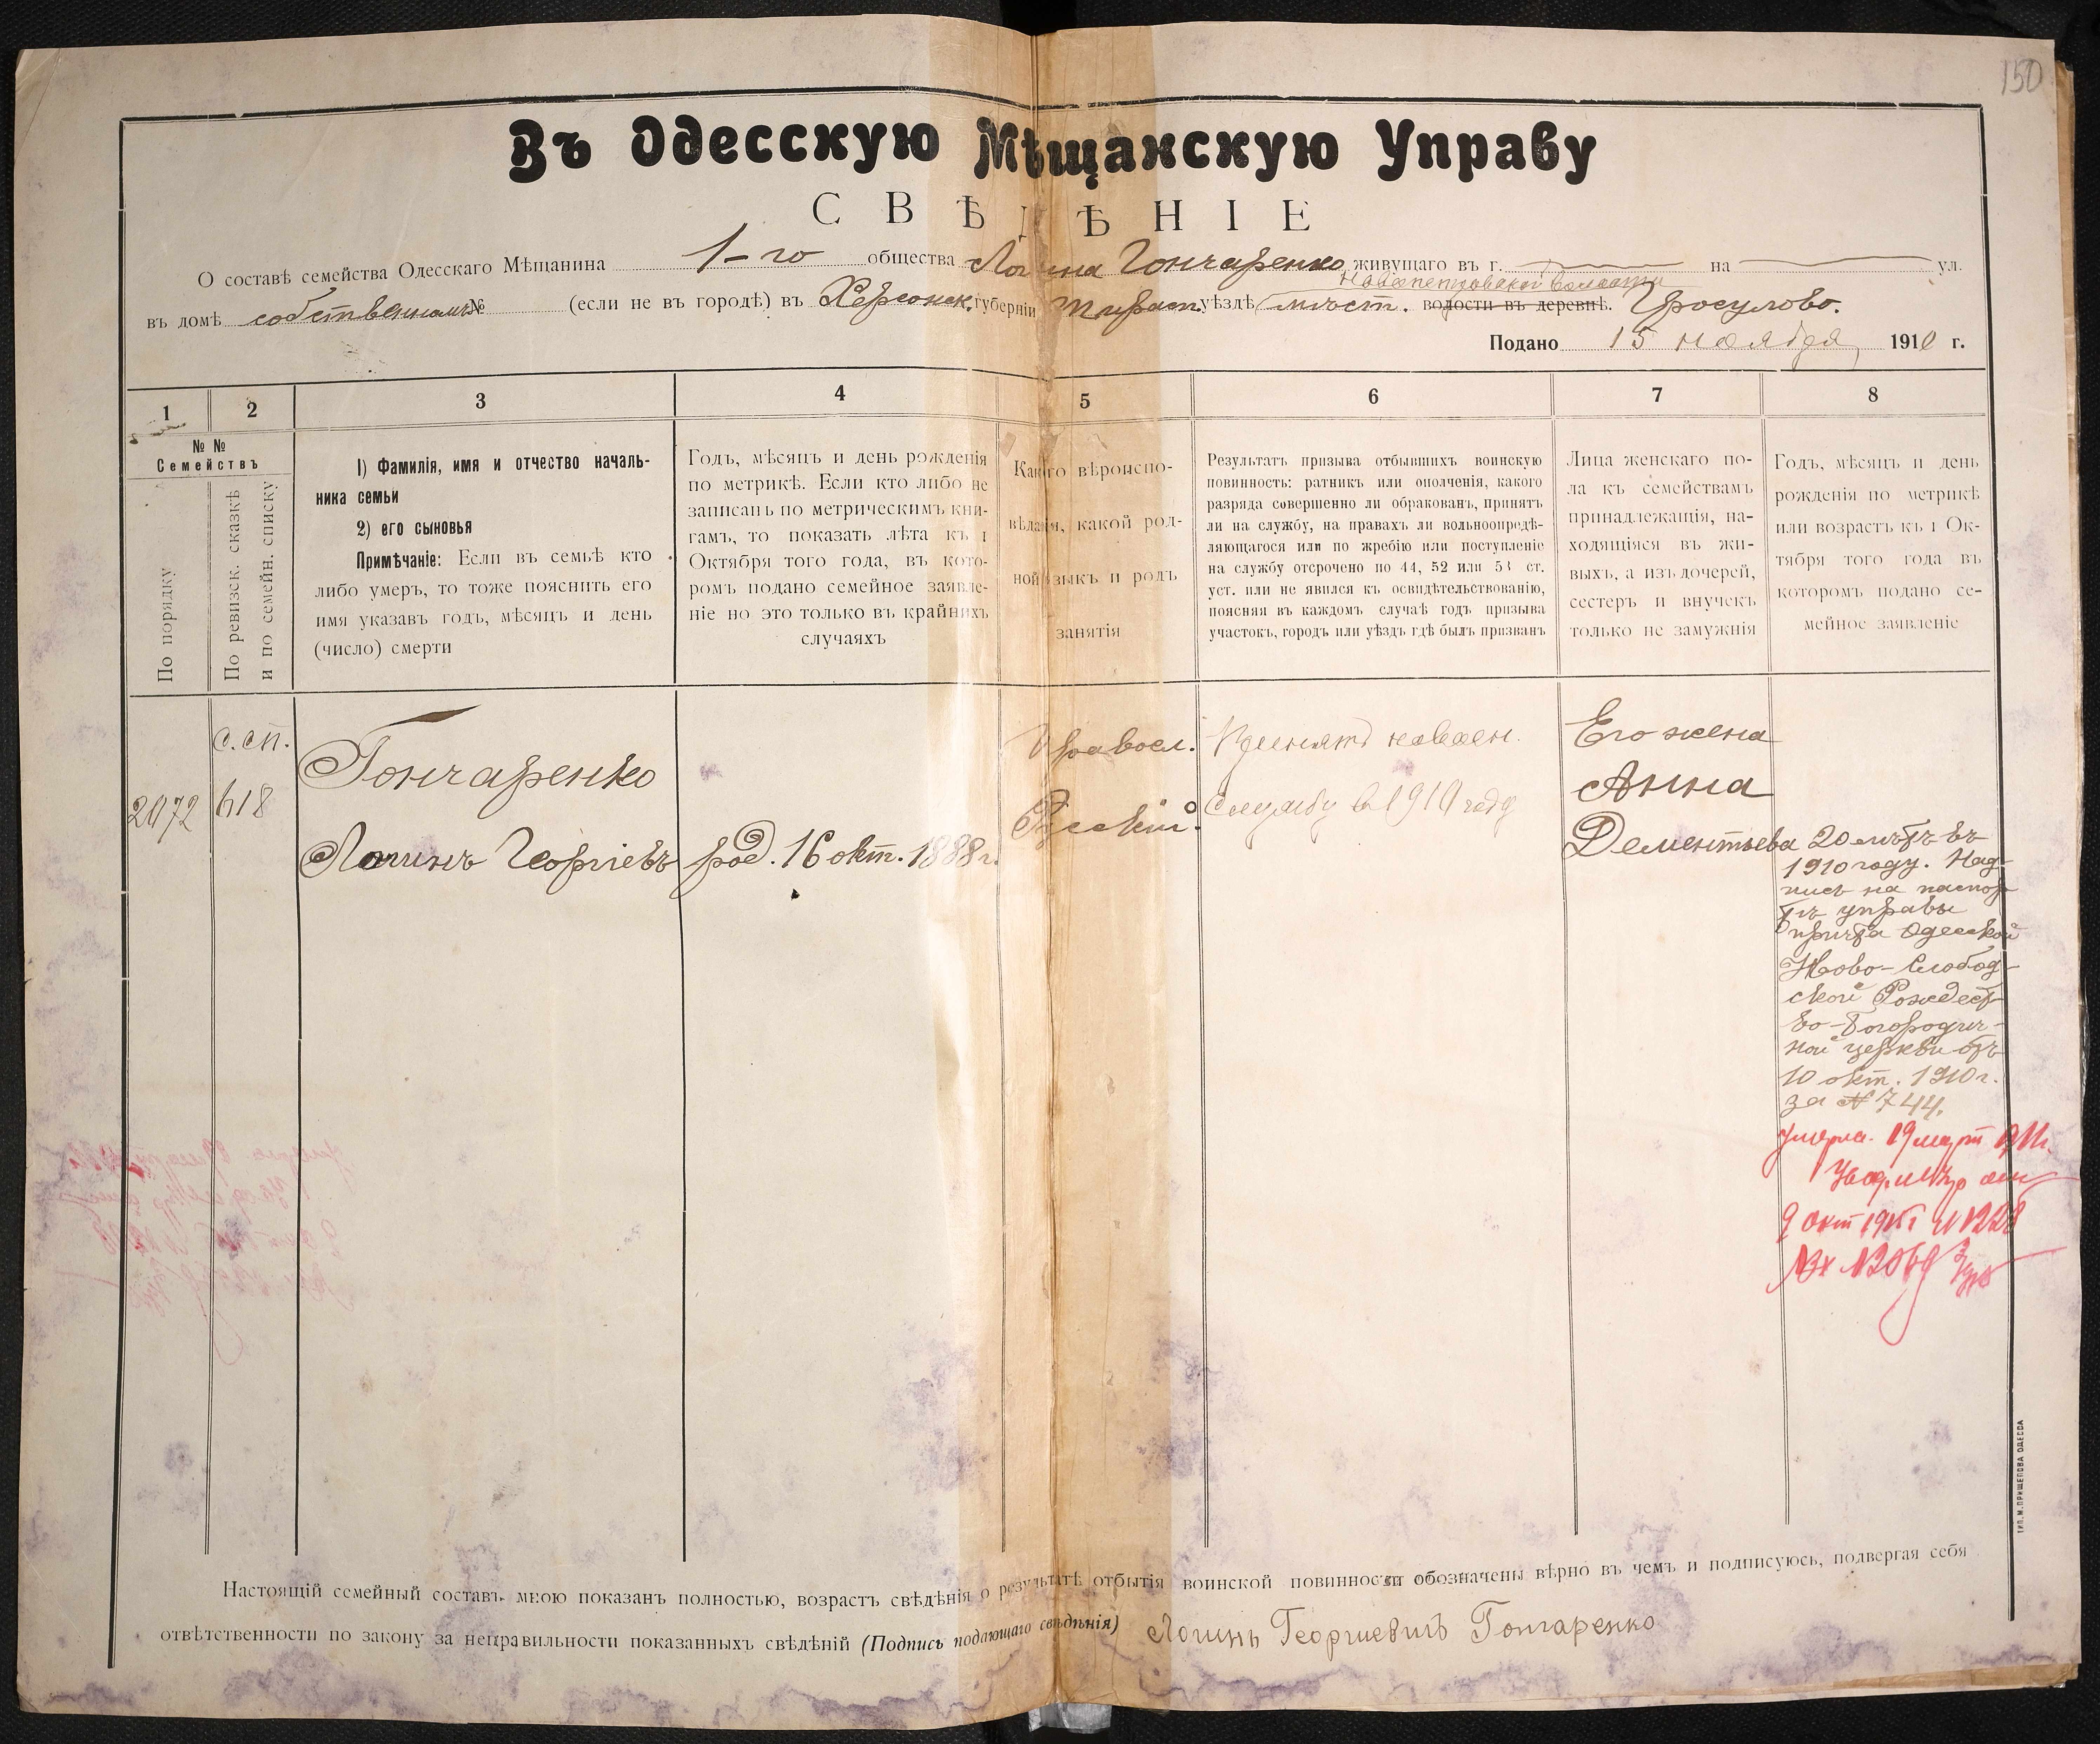 150
Въ Одесскую Мѣщанскую Управу
СВѢДѢНІЕ
О составѣ семейства Одесскаго Мѣщанина 1-го общества Логина Гончаренко живущаго въ г. на ул.
Новопетровской волости
въ домѣ собственномъ № (если не въ городѣ) въ Херсонск. губерніи Тирасп. уѣздѣ мѣст. волости въ деревнѣ. Гросулово.
Подано 15 ноября 1910 г.
1 2 3 4 5 6 7 8
№ №
Семействъ
По порядку
По ревизск. сказкѣ
и по семейн. списку
1) Фамилія, имя и отчество началь-
ника семьи
2) его сыновья
Примѣчаніе: Если въ семьѣ кто
либо умеръ, то тоже пояснить его
имя указавъ годъ, мѣсяцъ и день
(число) смерти
Годъ, мѣсяцъ и день рожденія
по метрикѣ. Если кто либо не
записанъ по метрическимъ кни-
гамъ, то показать лѣта къ 1
Октября того года, въ кото-
ромъ подано семейное заявле-
ніе но это только въ крайнихъ
случаяхъ
Какого вѣроиспо-
вѣданія, какой род-
ной языкъ и родъ
занятія
Результатъ призыва отбывшихъ воинскую
повинность: ратникъ или ополченія, какого
разряда совершенно ли обракованъ, принятъ
ли на службу, на правахъ ли вольноопредѣ-
ляющагося или по жребію или поступленіе
на службу отсрочено по 44, 52 или 53 ст.
уст. или не явился къ освидѣтельствованію,
поясняя въ каждомъ случаѣ годъ призыва
участокъ, городъ или уѣздъ гдѣ былъ призванъ
Лица женскаго по-
ла къ семействамъ
принадлежащія, на-
ходящіяся въ жи-
выхъ, а изъ дочерей,
сестеръ и внучекъ
только не замужнія
Годъ, мѣсяцъ и день
рожденія по метрикѣ
или возрастъ къ 1 Ок-
тября того года въ
которомъ подано се-
мейное заявленіе
2072
с. сп.
618
Гончаренко
Логинъ Георгіевъ
род. 16 окт. 1888 г.
Правосл.
Русскій.
Принятъ на воен.
службу въ 1910 году
Его жена
Анна
Дементьева
20 лѣтъ въ
1910 году. Над-
пись на паспор-
тѣ управы
причта Одесской
Ново-Слобод-
ской Рождест-
во-Богородич-
ной церкви отъ
10 окт. 1910 г.
за № 744.
умерла 19 март
9 окт
Вх
Настоящій семейный составъ мною показанъ полностью, возрастъ свѣдѣнія о результатѣ отбытія воинской повинности обозначены вѣрно въ чемъ и подписуюсь, подвергая себя
отвѣтственности по закону за неправильности показанныхъ свѣдѣній (Подпись подающаго свѣдѣнія) Логинъ Георгиевичъ Гончаренко
ТИП. М. ПРИЩЕПОВА ОДЕССА